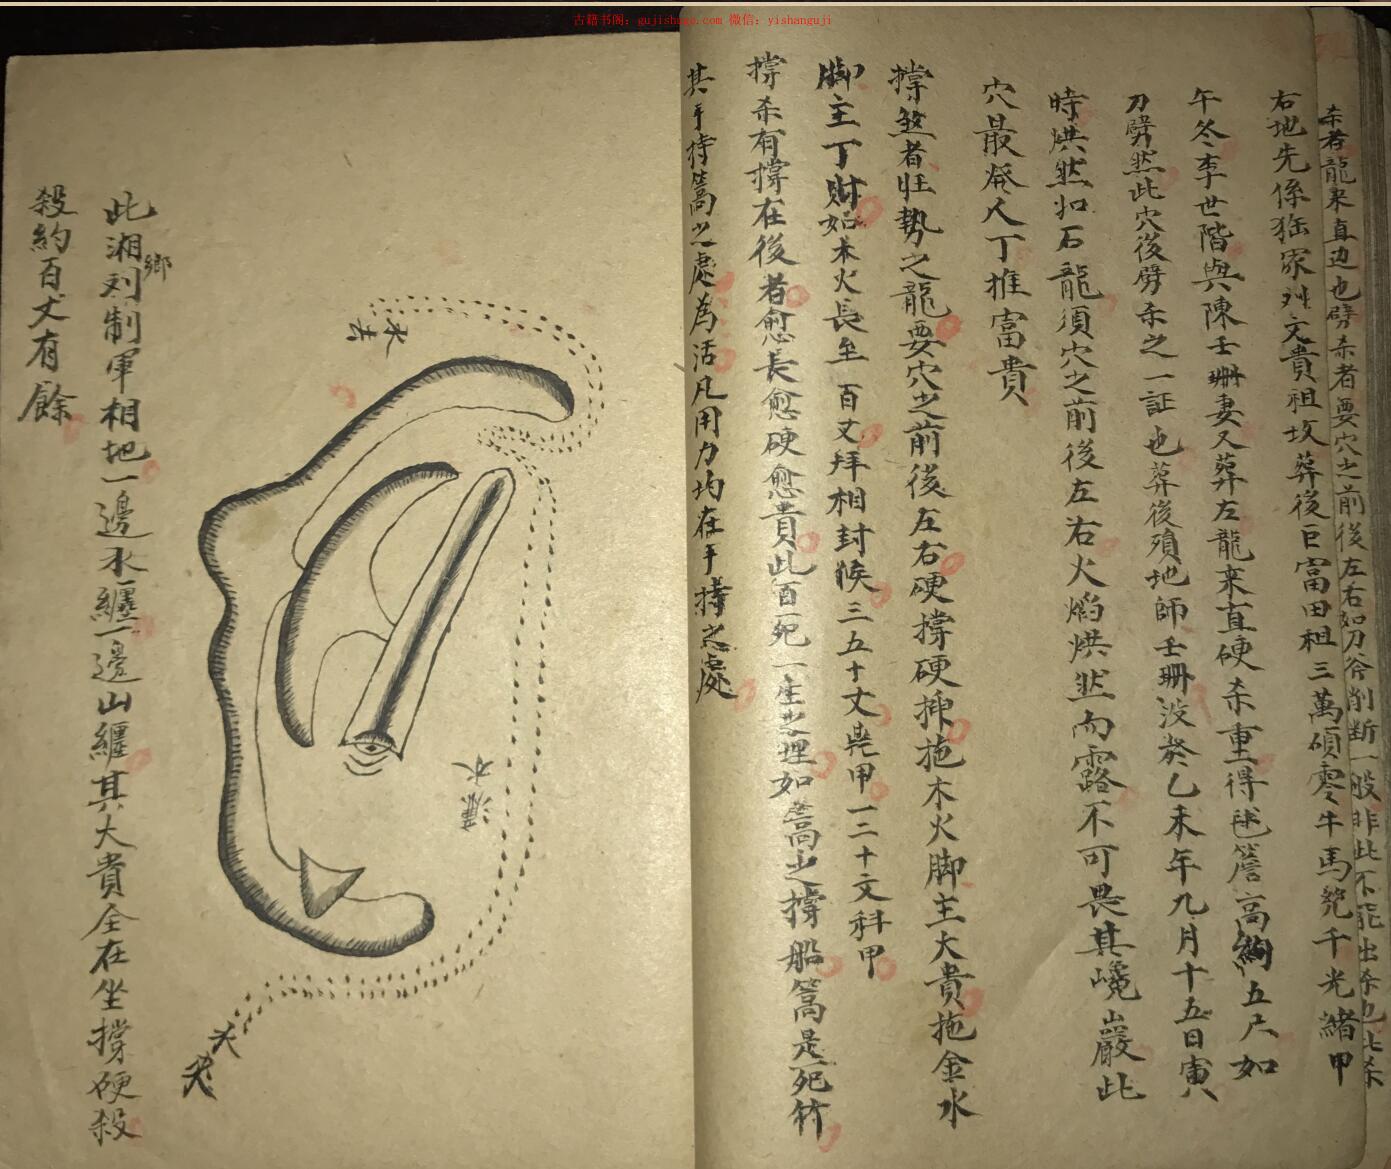 古籍书阁：gujishuge.com 微信：yishanguji
杀若龍来直边也劈杀者要穴之前後左右如刀斧削断一般非此不能出杀也此杀
右地先係 家刘文貴祖坟葬後巨富田租三萬碩零牛馬 千光緒甲
午冬李世階與陳壬珊妻又葬左龍来直硬杀重得毬簷高約五尺如
刀劈然此穴後劈杀之一証也葬後殞地師壬珊没癸乙未年九月十五日寅
時烘然如石龍須穴之前後左右火熖烘然而露不可畏其巉巖此
穴最發人丁推富貴
撑煞者旺勢之龍要穴之前後左右硬撑硬 拖木火脚主大貴拖金水
脚主丁財如木火長至百丈拜相封侯三五十丈 甲一二十丈科甲
撑杀有撑在後者愈長愈硬愈貴此百死一生之理如篙之撑船篙是死竹
其手持篙之處為活凡用力均在手持之處
水去
源水
水來
此湘鄉刘制軍相地一邊水纏一邊山纏其大貴全在坐撑硬殺
殺約百丈有餘